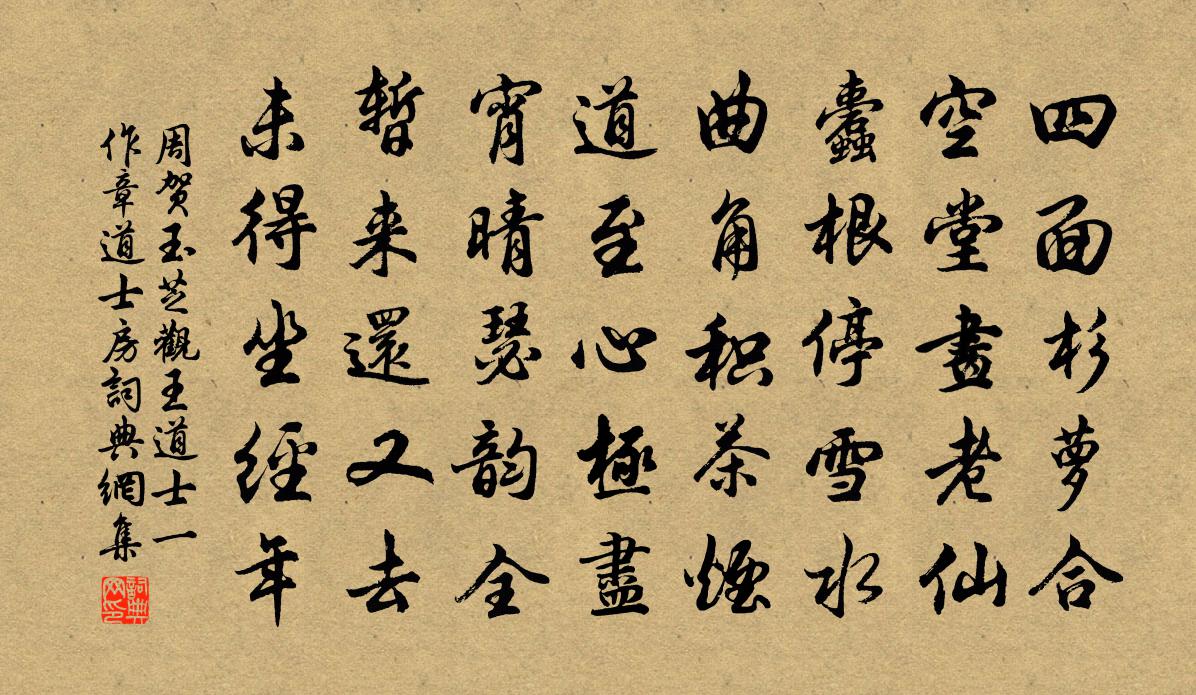 四面杉萝合
空堂畫老仙
蠹根停雪水
曲角积茶煙
道至心極盡
宵晴瑟韵全
暫来還又去
未得坐經年
周贺玉芝觀王道士一
作章道士房詞典網集
詞典网印